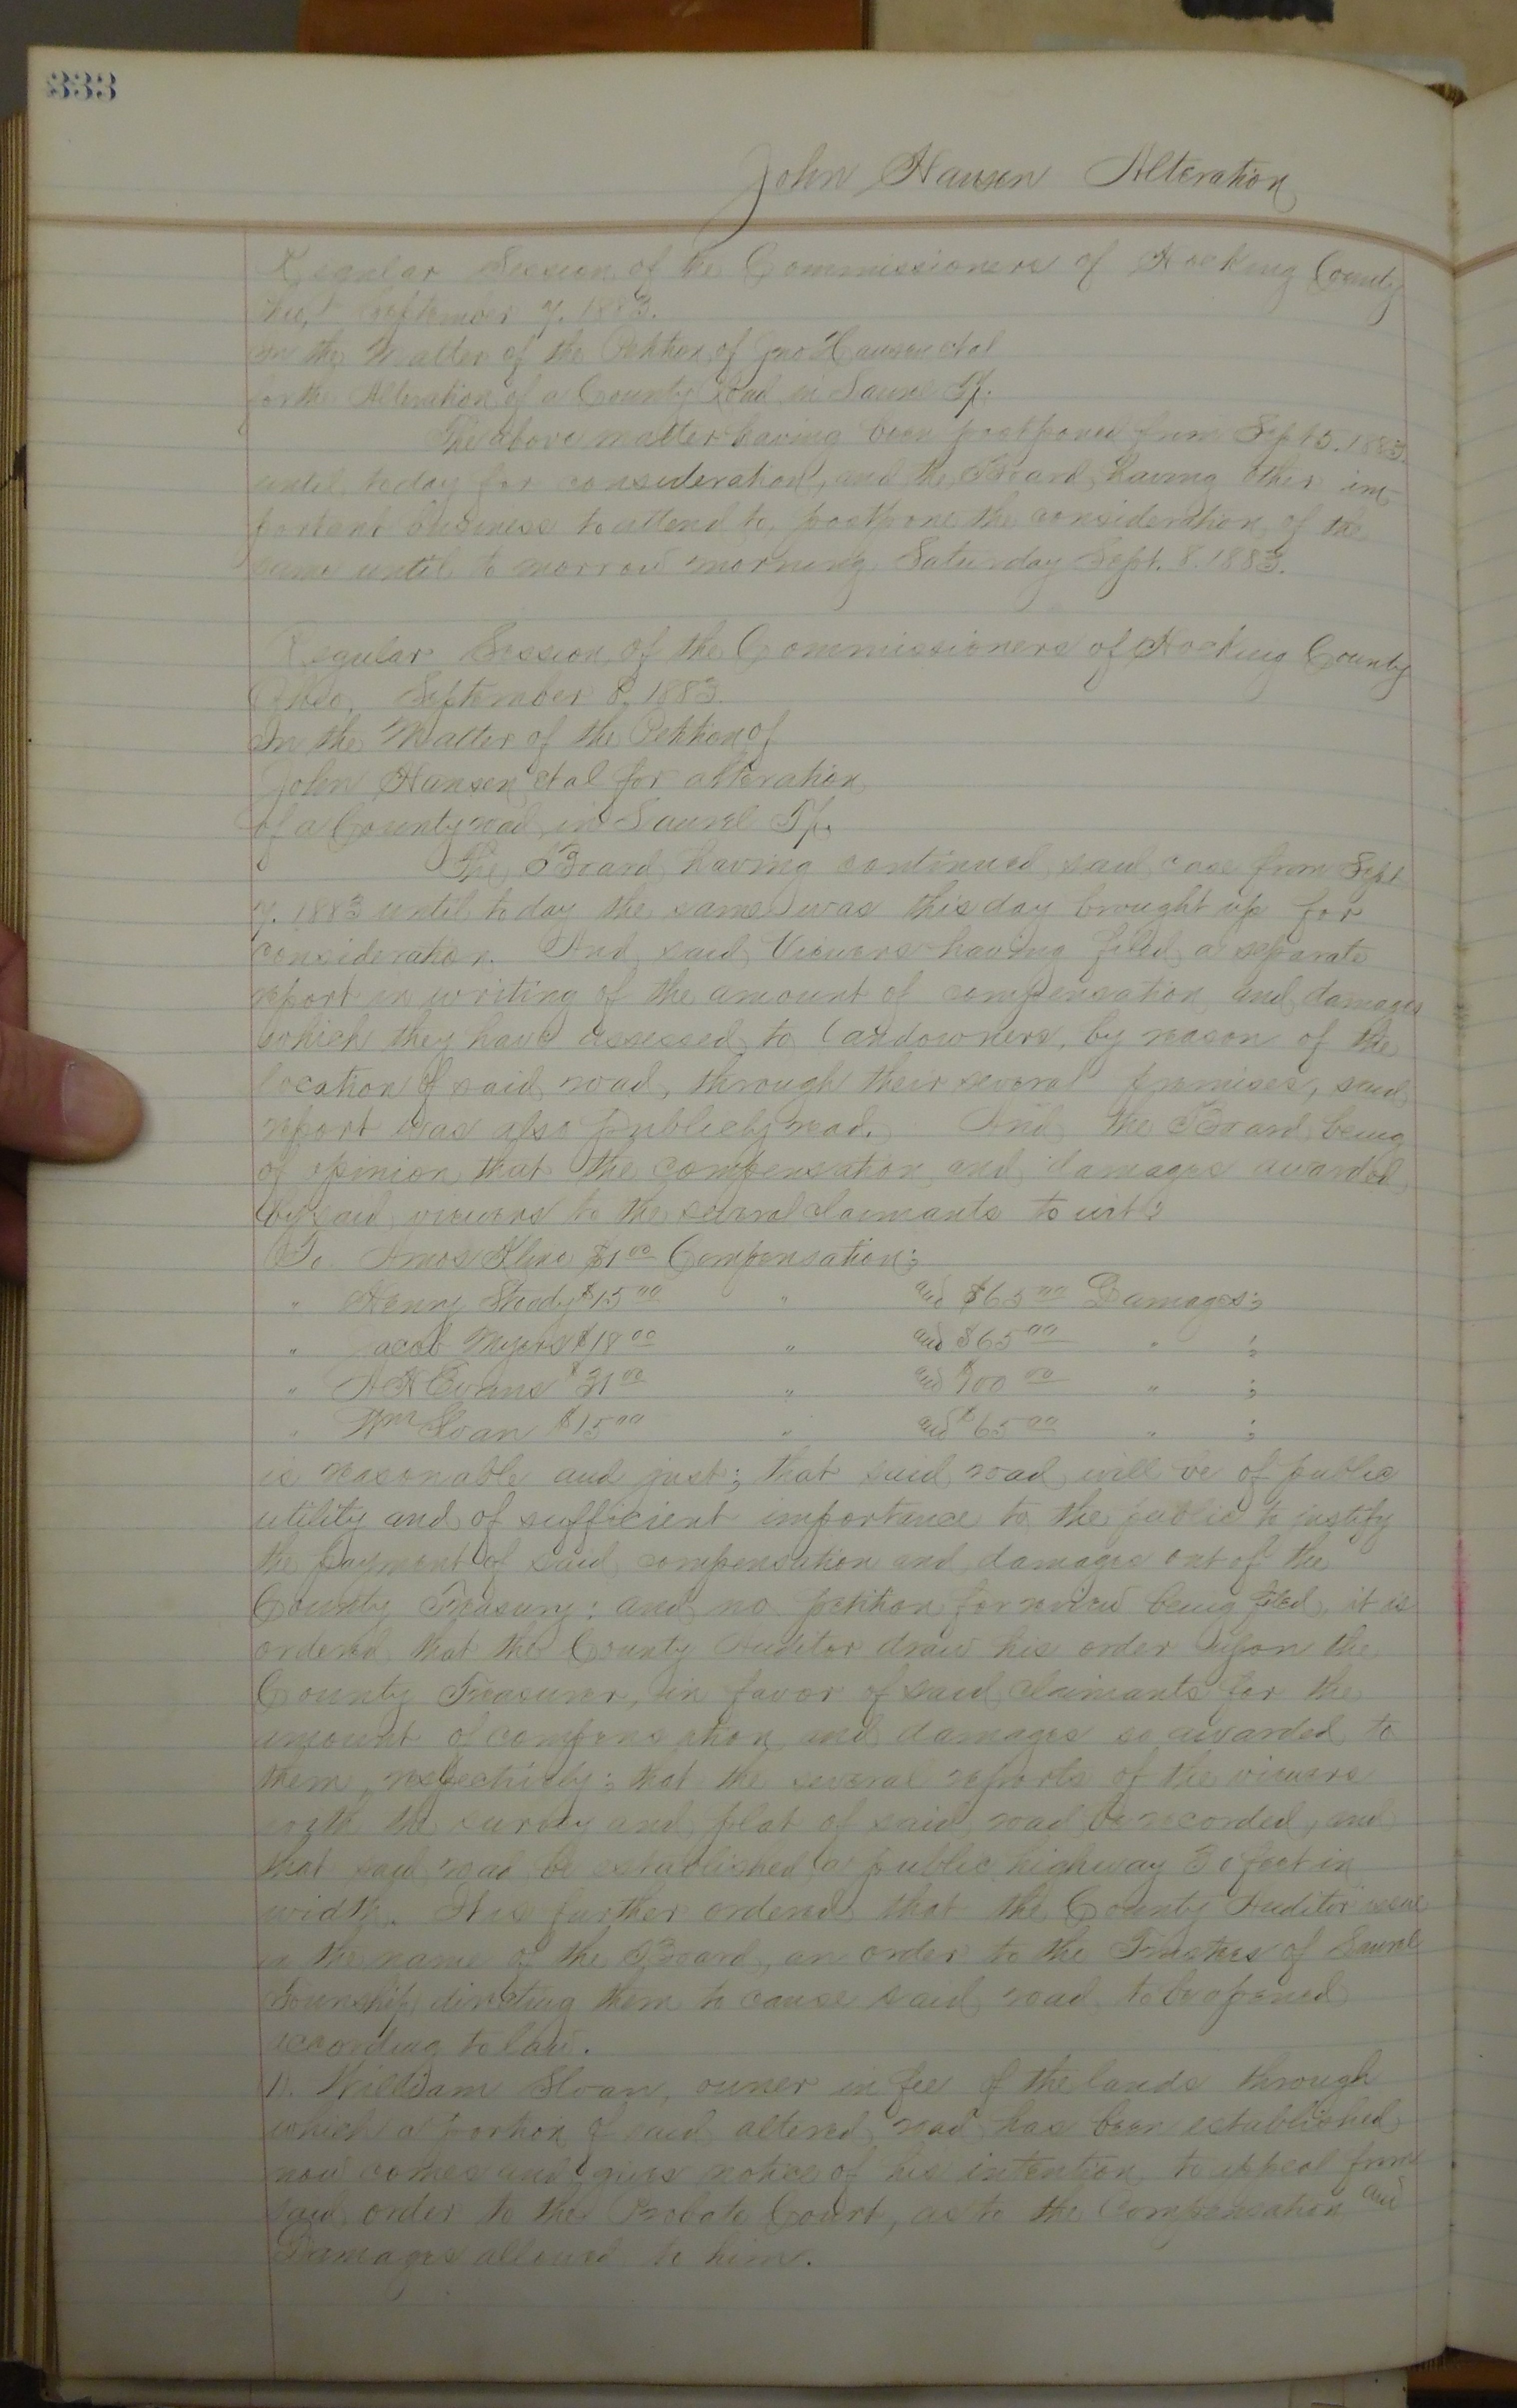 333
John Hansen Alteration
Regular Session of the Commissioners of Hocking County
September 7. 1883.
In the Matter of the Petition of Jno Hansen et al
for the Alteration of a County Road in Laurel Tp.
The above matter having been postponed from Sept 5. 1883.
until today for consideration, and the Board having other im-
portant business to attend to, postpone the consideration of the
same until to morrow morning Saturday Sept. 8. 1883.
Regular Session of the Commissioners of Hocking County
Ohio, September 8, 1883.
In the Matter of the Petition of
John Hansen et al for alteration
of a County road in Laurel Tp.
The Board having continued said case from Sept
7. 1883 until today the same was this day brought up for
consideration. And said Viewers having filed a separate
report in writing of the amount of compensation and damages
which they have assessed to Landowners, by reason of the
location of said road, through their several premises, said
report was also publicly read. And the Board being
of opinion that the compensation and damages awarded
by said viewers to the several claimants to wit:
To Amos Kline $1 00 Compensation;
" Henry Shody $15 00 " and $65 00 Damages;
" Jacob Myers $18 00 " and $65 00 " ;
" A H Evans $31 00 " and $100 00 " ;
" Wm Sloan $15 00 " and $65 00 " ;
is reasonable and just; that said road will be of public
utility and of sufficient importance to the public to justify
the payment of said compensation and damages out of the
County Treasury: and no petition for review being filed, it is
ordered that the County Auditor draw his order upon the
County Treasurer, in favor of said claimants for the
amount of compensation and damages so awarded to
them, respectively; that the several reports of the viewers
with the survey and plat of said road be recorded, and
that said road be established a public highway 30 feet in
width. It is further ordered that the County Auditor issue
in the name of the Board, an order to the Trustees of Laurel
Township directing them to cause said road to be opened
according to law.
William Sloan, owner in fee of the lands through
which a portion of said altered road has been established
now comes and gives notice of his intention to appeal from
said order to the Probate Court, as to the Compensation and
Damages allowed to him.